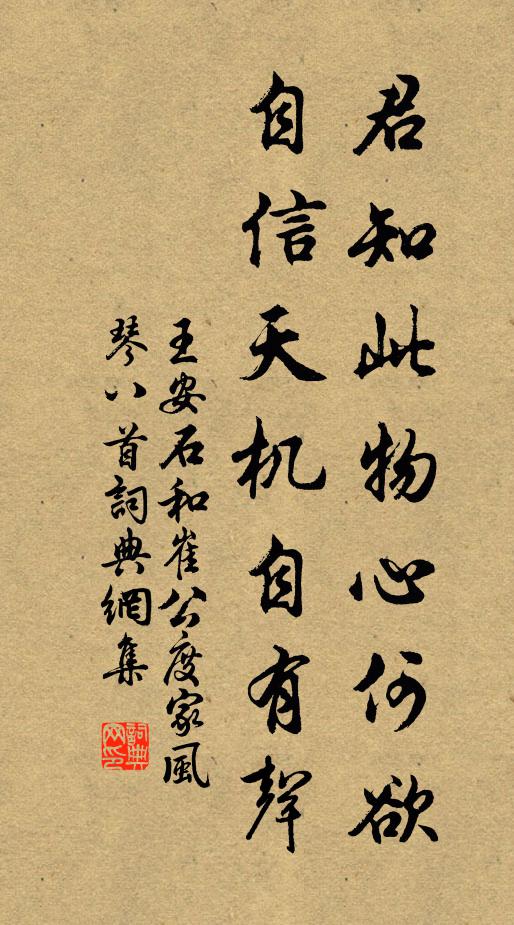 君知此物心何欲
自信天机自有聲
王安石和崔公度家風
琴八首詞典網集
詞典網印